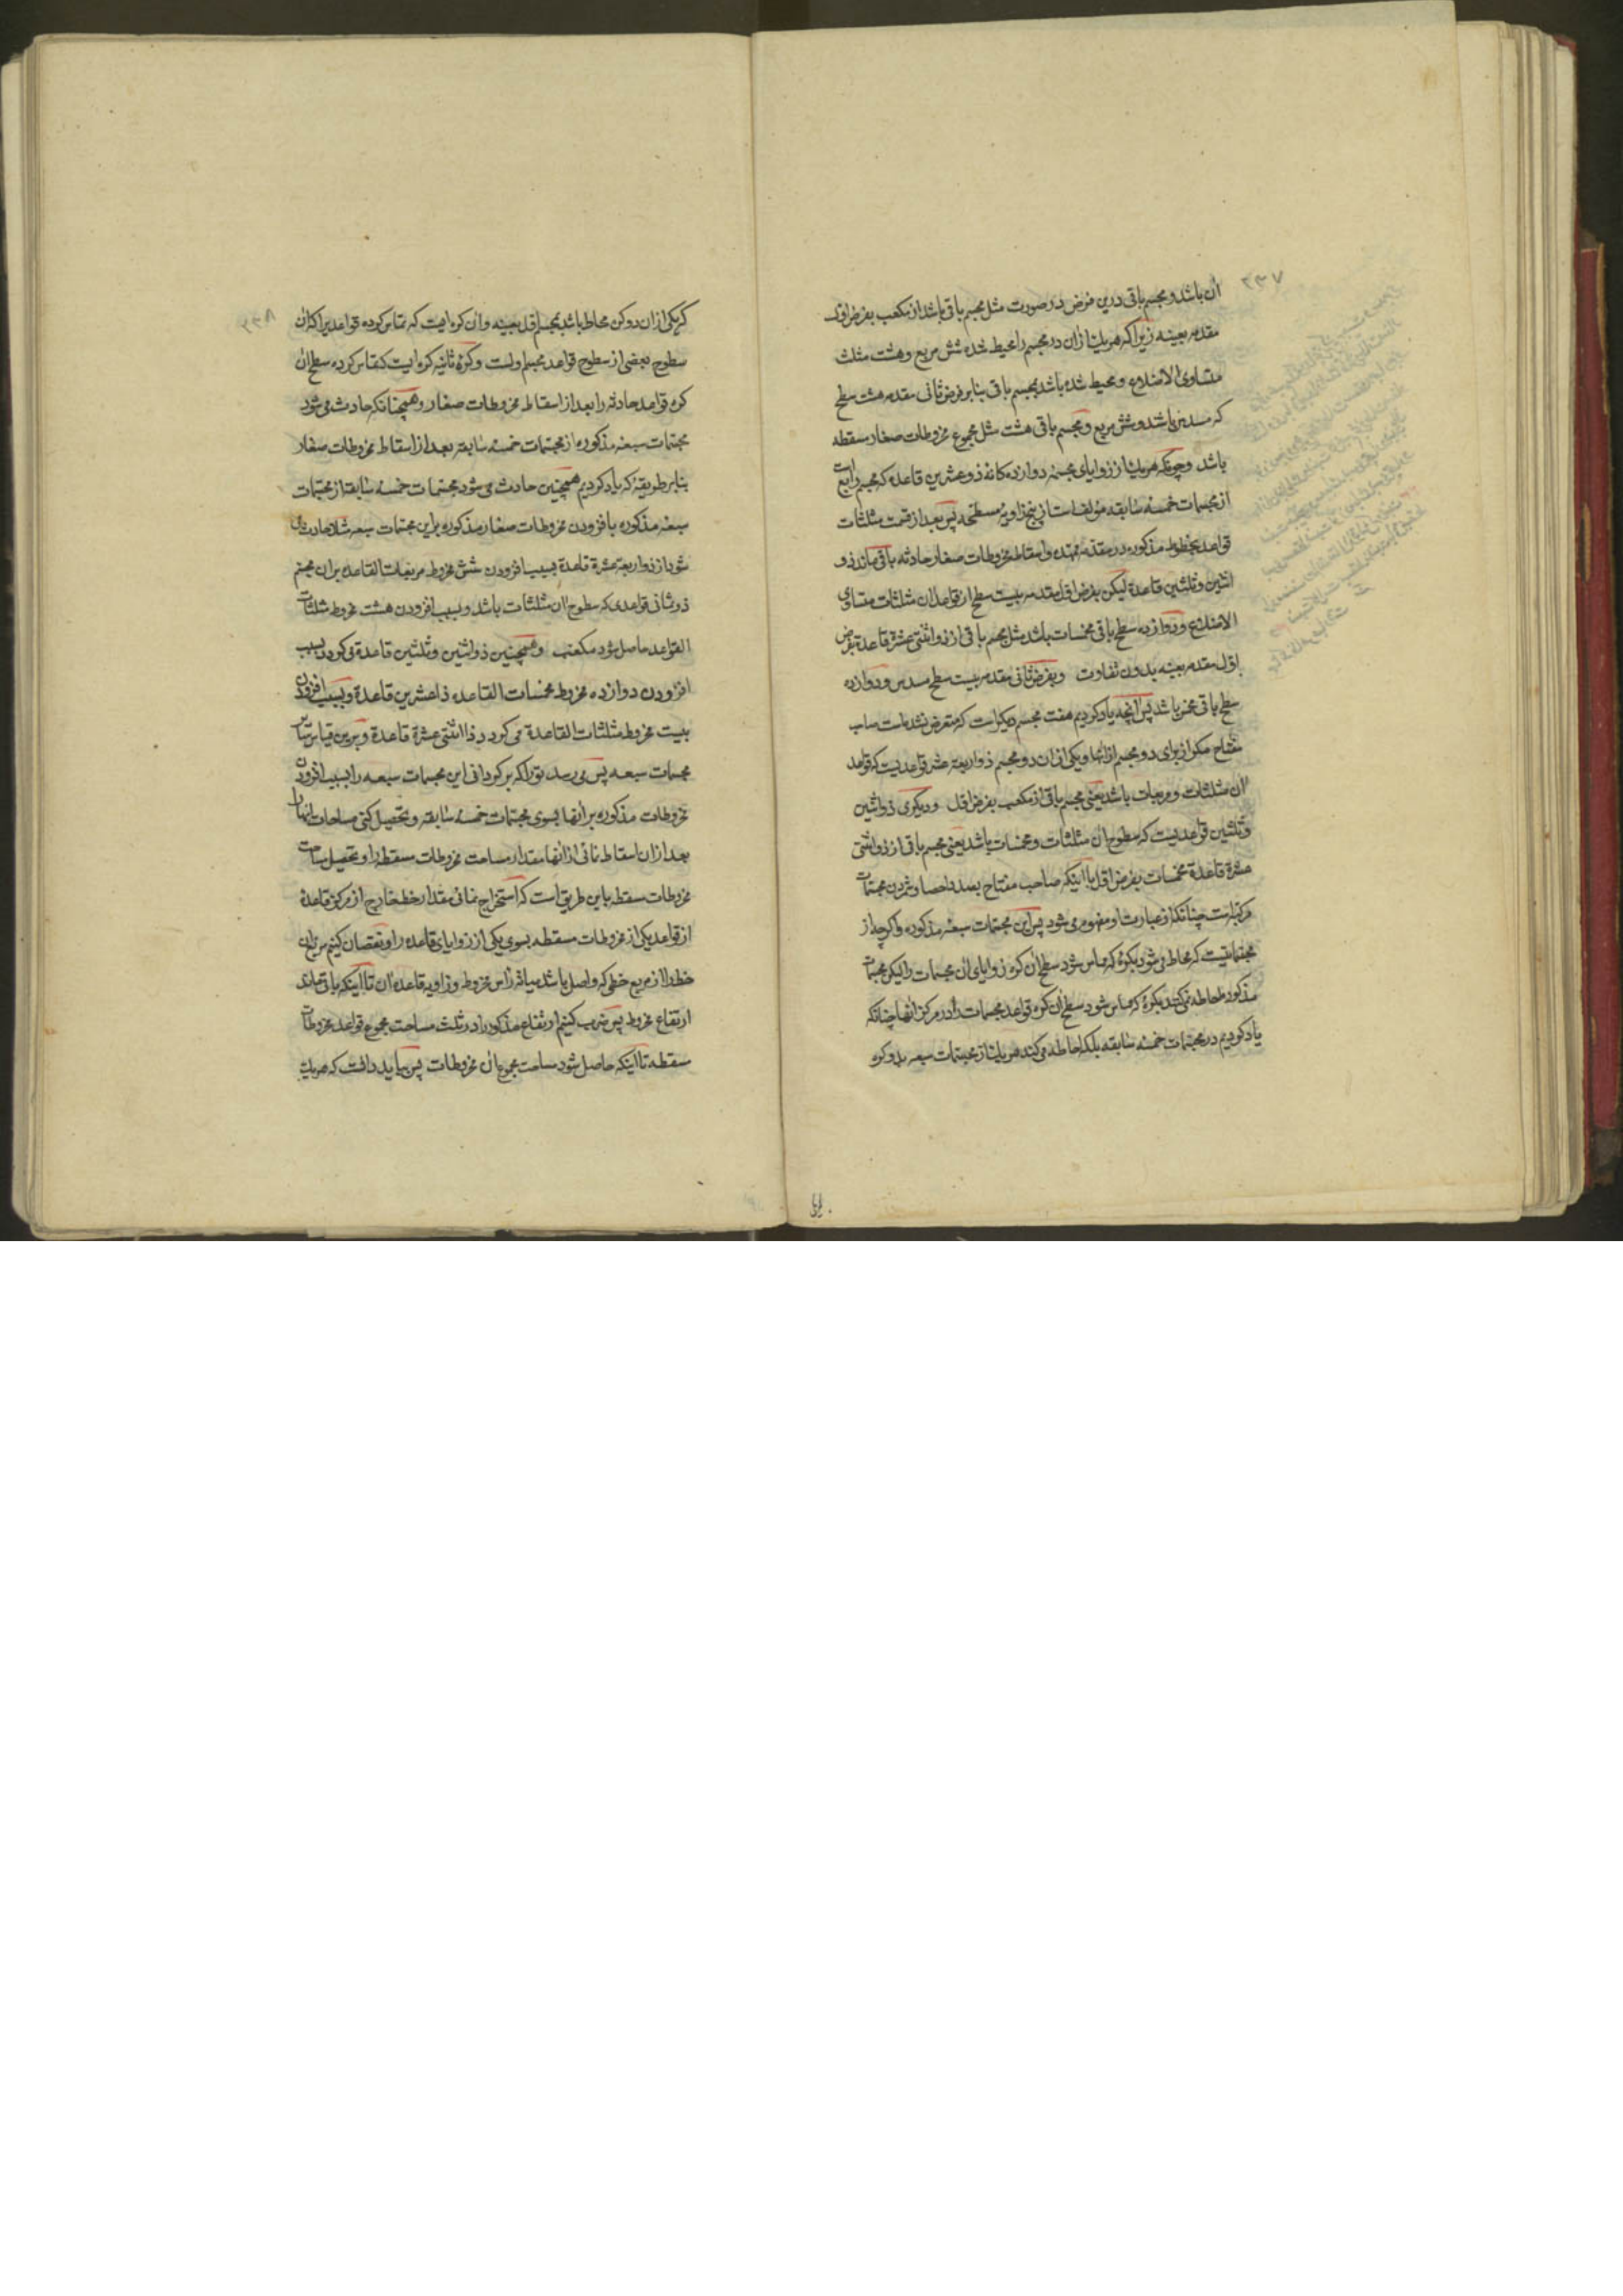 ۲۳۷
آن باشد و مجسم باقی درین فرض در صورت مثل مجسم باقی باشد از مکعب بفرض اول
مقدمه بعینه زیرا که هر یک از آن دو مجسم را محیط شده شش مربع و هشت مثلث
متساوی الاضلاع و محیط شده باشد بمجسم باقی بنابر فرض ثانی مقدمه هشت سطح
که مسدس باشد و شش مربع و مجسم باقی هشت مثل مجموع مخروطات صغار مسقطه
باشد و چونکه هر یک از زوایای مجسمه دوازده کانه ذو عشرین قاعده که مجسم رابع است
از مجسمات خمسه سابقه مؤلف است از پنج زاویهٔ مسطحه پس بعد از قسمت مثلثات
قواعد بخطوط مذکوره در مقدمه ممهده و اسقاط مخروطات صغار حادثه باقی ماند ذو
اثنین و ثلثین قاعدة لیکن بفرض اول مقدمه بیست سطح از قواعد آن مثلثات متساوی
الاضلاع و دوازده سطح باقی مخمسات باشد مثل مجسم باقی از ذو اثنتی عشرة قاعدة بفرض
اول مقدمه بعینه بدون تفاوت و بفرض ثانی مقدمه بیست سطح مسدس و دوازده
سطح باقی مخمس باشد پس آنچه یاد کردیم هفت مجسم دیگر است که متعرض نشده است صاحب
مفتاح مگر از برای دو مجسم از آنها و یکی از آن دو مجسم ذو اربعة عشر قواعدیست که قواعد
آن مثلثات و مربعات باشد یعنی مجسم باقی از مکعب بفرض اول و دیگری ذو اثنین
و ثلثین قواعدیست که سطوح آن مثلثات و مخمسات باشد یعنی مجسم باقی از ذو اثنتی
عشرة قاعدة مخمسات بفرض اول با اینکه صاحب مفتاح بصدد احصا و شمردن مجسمات
مرکبه است چنانکه از عبارت او مفهوم می شود پس این مجسمات سبعه مذکوره و اگر چه از
مجسماتیست که محاط می شود بکرهٔ که مماس شود سطح آن کره زوایای آن مجسمات را لیکن مجسمات
مذکوره احاطه نمی کنند بکرهٔ که مماس شود سطح آن کره قواعد مجسمات را در مرکز آنها چنانکه
یاد کردیم در مجسمات خمسه سابقه بلکه احاطه می کند هر یک از مجسمات سبعه بدو کره
۲۳۸
که یکی از آن دو کره محاط باشد بمجسم اول بعینه و آن کره ایست که تماس کرده قواعدیرا که آن
سطوح بعضی از سطوح قواعد مجسم اولست و کرهٔ ثانیه کره ایست که تماس کرده سطح آن
کره قواعد حادثه را بعد از اسقاط مخروطات صغار و همچنانکه حادث می شود
مجسمات سبعه مذکوره از مجسمات خمسه سابقه بعد از اسقاط مخروطات صغار
بنابر طریقهٔ که یاد کردیم همچنین حادث می شود مجسمات خمسه سابقه از مجسمات
سبعه مذکوره با فزودن مخروطات صغار مذکوره براین مجسمات سبعه مثلا حادث می
شود از ذو اربعة عشرة قاعدة بسبب افزودن شش مخروط مربعات القاعده بران مجسم
ذو ثمانی قواعدی که سطوح آن مثلثات باشد و بسبب افزودن هشت مخروط مثلثات
القواعد حاصل شود مکعب و همچنین ذو اثنین و ثلثین قاعدة می گردد بسبب
افزودن دوازده مخروط مخمسات القاعده ذا عشرین قاعدة و بسبب افزودن
بیست مخروط مثلثات القاعدة می گردد ذا اثنتی عشرة قاعدة و برین قیاس سایر
مجسمات سبعه پس می رسد تو را که بر گردانی این مجسمات سبعه را بسبب افزودن
مخروطات مذکوره بر آنها بسوی مجسمات خمسه سابقه و تحصیل کنی مساحات آنها را
بعد از آن اسقاط نمائی از آنها مقدار مساحت مخروطات مسقطه را و تحصیل مساحت
مخروطات مسقطه باین طریق است که استخراج نمائی مقدار خط خارج از مرکز قاعدهٔ
از قواعد یکی از مخروطات مسقطه بسوی یکی از زوایای قاعده را و نقصان کنیم مربع آن
خط را از مربع خطی که واصل باشد میانهٔ رأس مخروط و زاویه قاعده آن تا اینکه باقی ماند
ارتفاع مخروط پس ضرب کنیم ارتفاع مذکور را در ثلث مساحت مجموع قواعد مخروطات
مسقطه تا اینکه حاصل شود مساحت مجموع آن مخروطات پس بباید دانست که هر یک